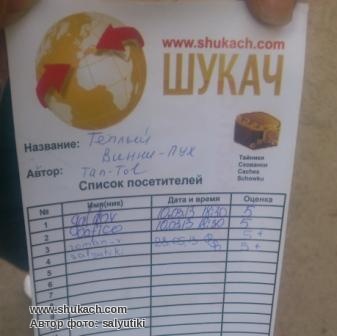 www.shukach.com
ШУКАЧ
Название: Теплый
Винни-Пух
Автор: Tan-Tol
Тайники
Сховання
Caches
Schowku
Список посетителей
№ Имя(ник) Дата и время Оценка
1 10.03.13 18:30 5
2 10.03.13 18:30 5
3 roman-r 28-05-13 5+
4 salyutiki 5+
5
6
7
8
www.shukach.com
Автор фото: salyutiki